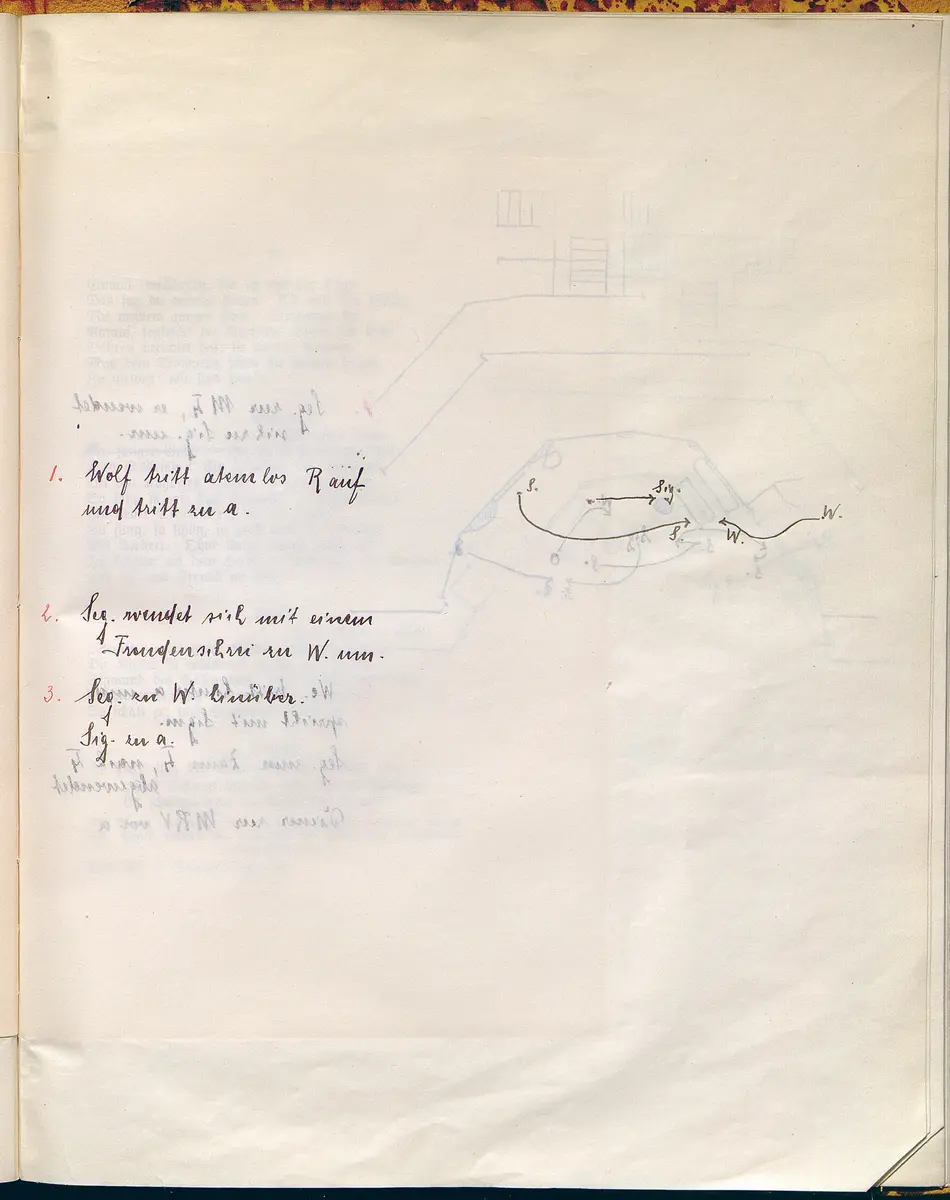 1. Wolf tritt atemlos R auf
und tritt zu a.
S.
Sig.
S.
W.
W.
2. Seg. wendet sich mit einem
Freudenschrei zu W. um.
3. Seg. zu W. hinüber.
Sig. zu a.